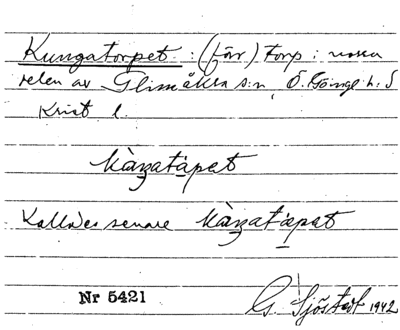 Kungatorpet : (förr) torp i norra
delen av Glimåkra s:n, Ö. Göinge h:d
Krist l.
kàŋatápet
Kallades senare kàŋatápet
Nr 5421
G. Sjöstedt 1942